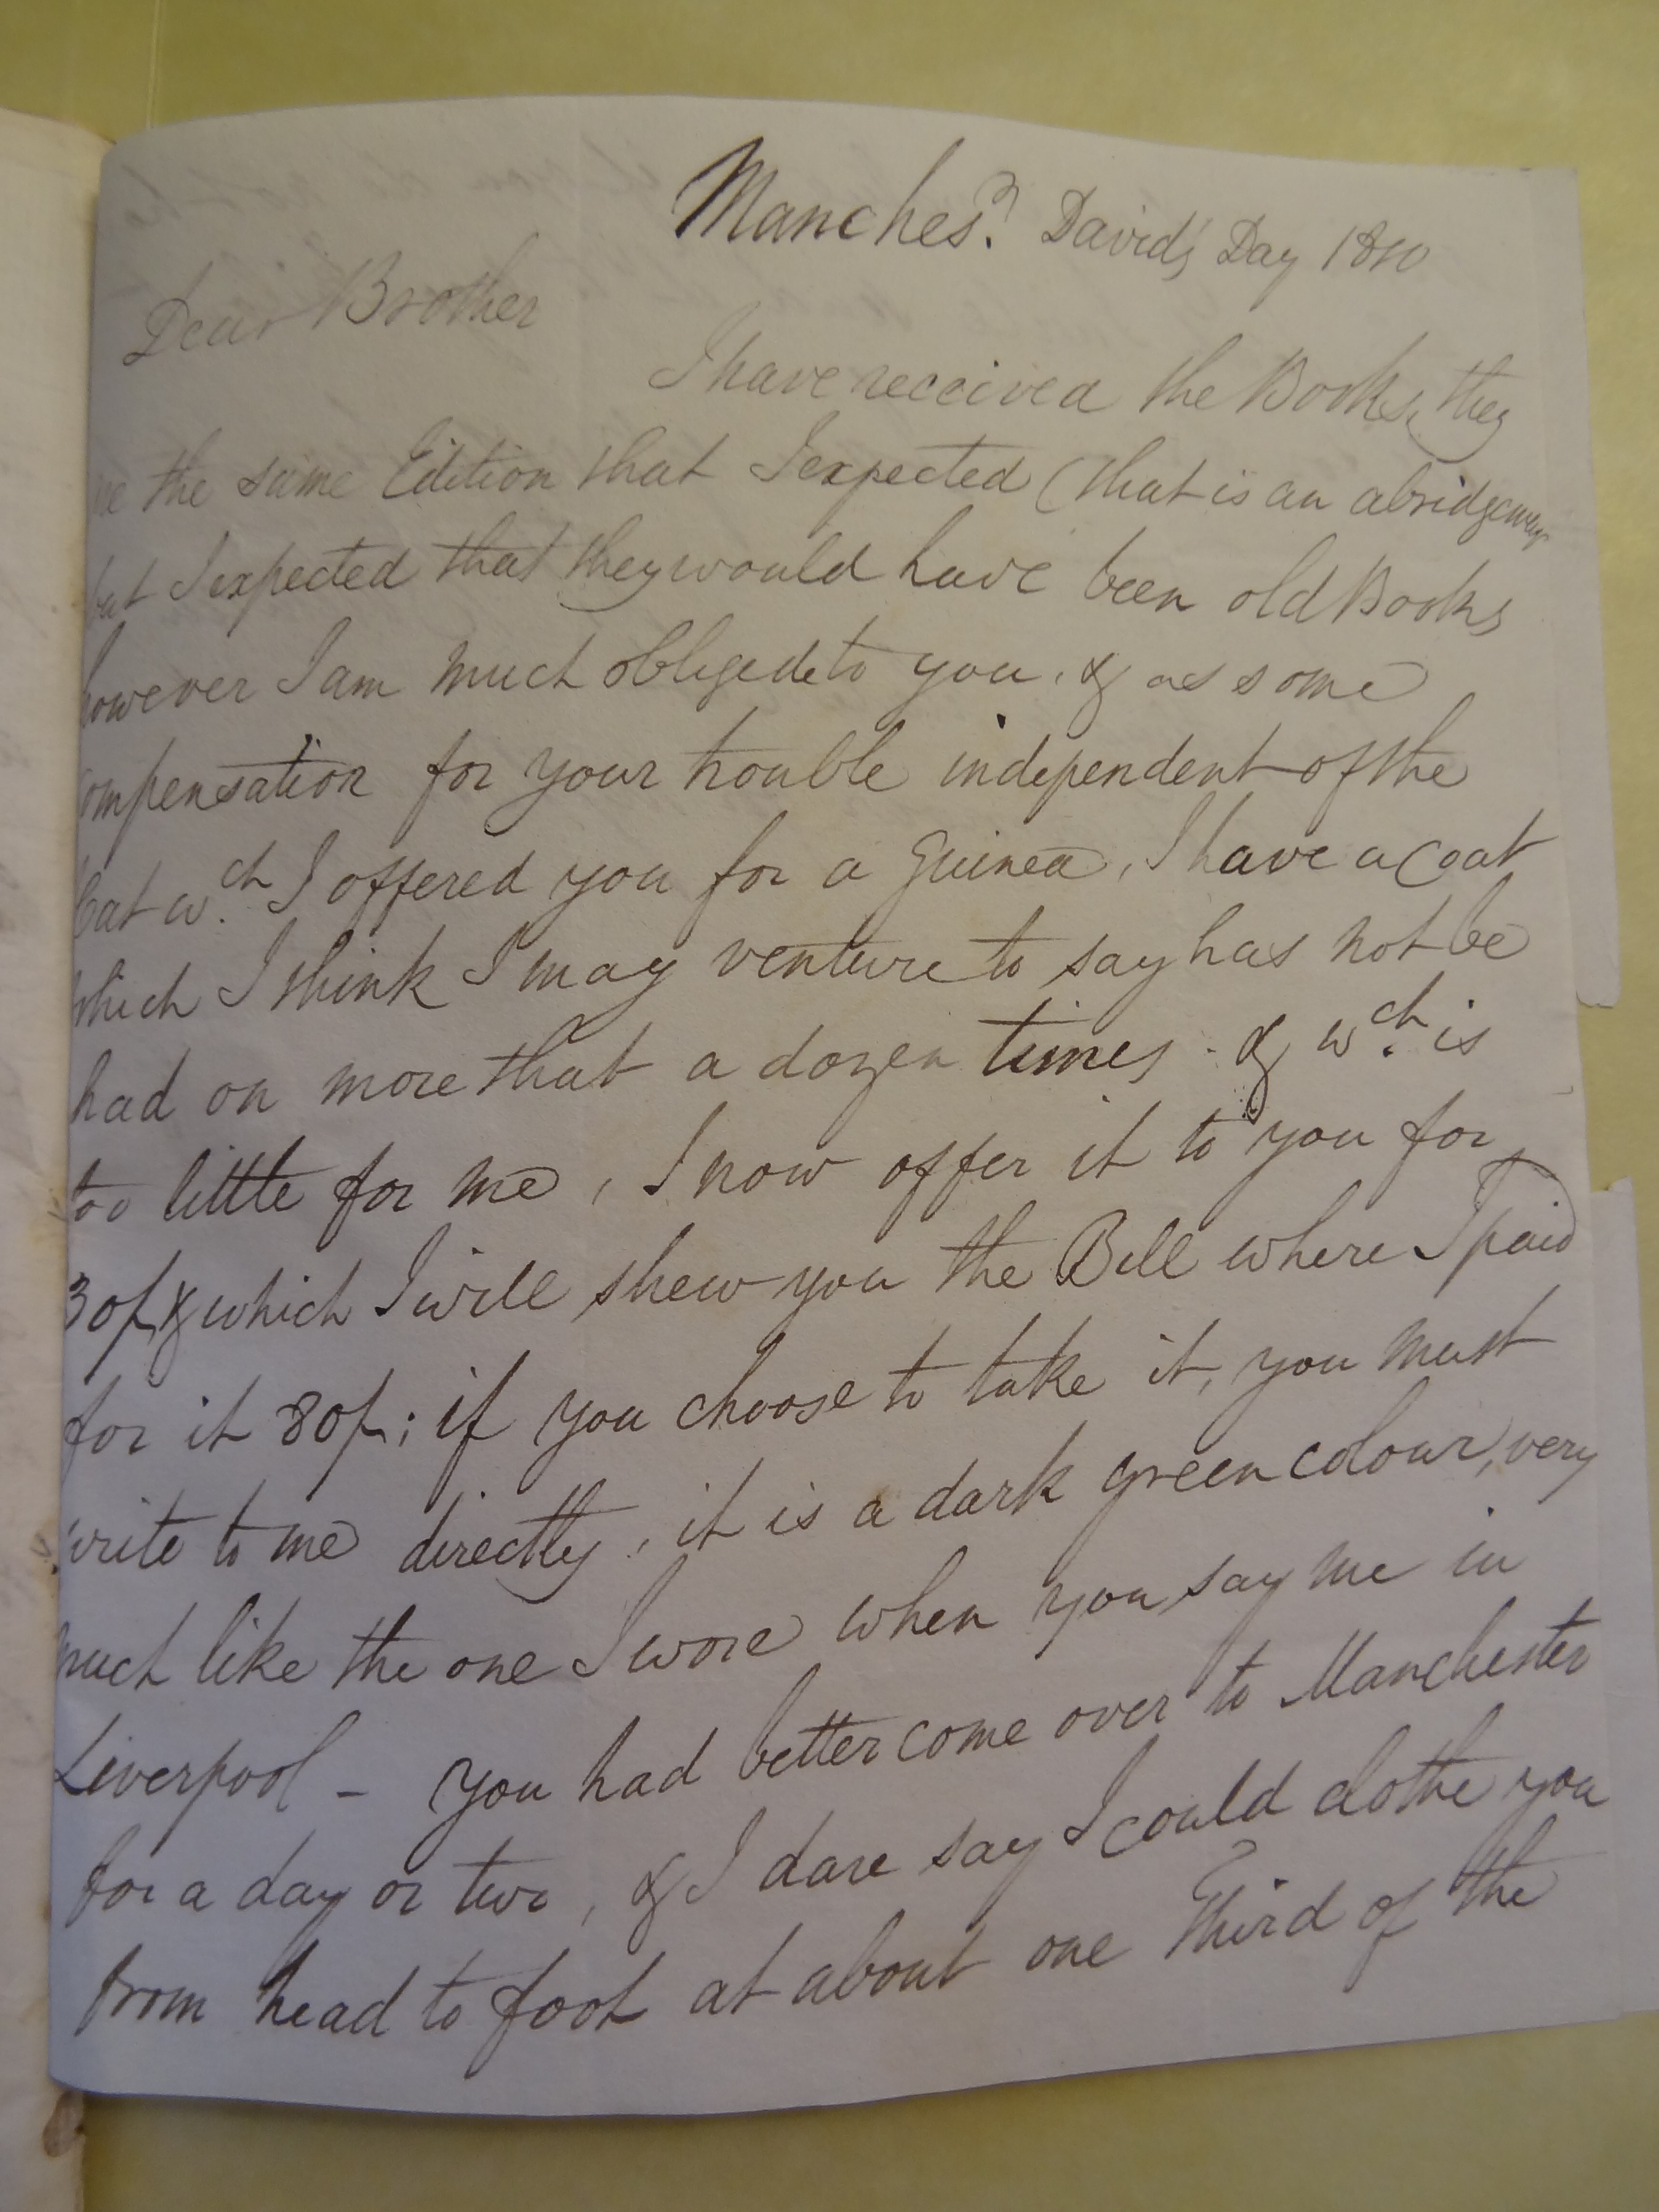 Manches.r David's Day 1810
Dear Brother
I have received the Books, they
are the same Edition that I expected (that is an abridgement
but I expected that they would have been old Books
however I am much obliged to you, & as some
compensation for your trouble independent of the
w.ch I offered you for a Guinea, I have a Coat
which I think I may venture to say has not be
had on more that a dozen times - & w.ch is
too little for me, I now offer it to you for
30/- & which I will shew you the Bill where I paid
for it 80/-; if you choose to take it, you must
write to me directly, it is a dark green colour, very
much like the one I wore when you say me in
Liverpool - you had better come over to Manchester
for a day or two, & I dare say I could clothe you
from head to foot at about one Third of the